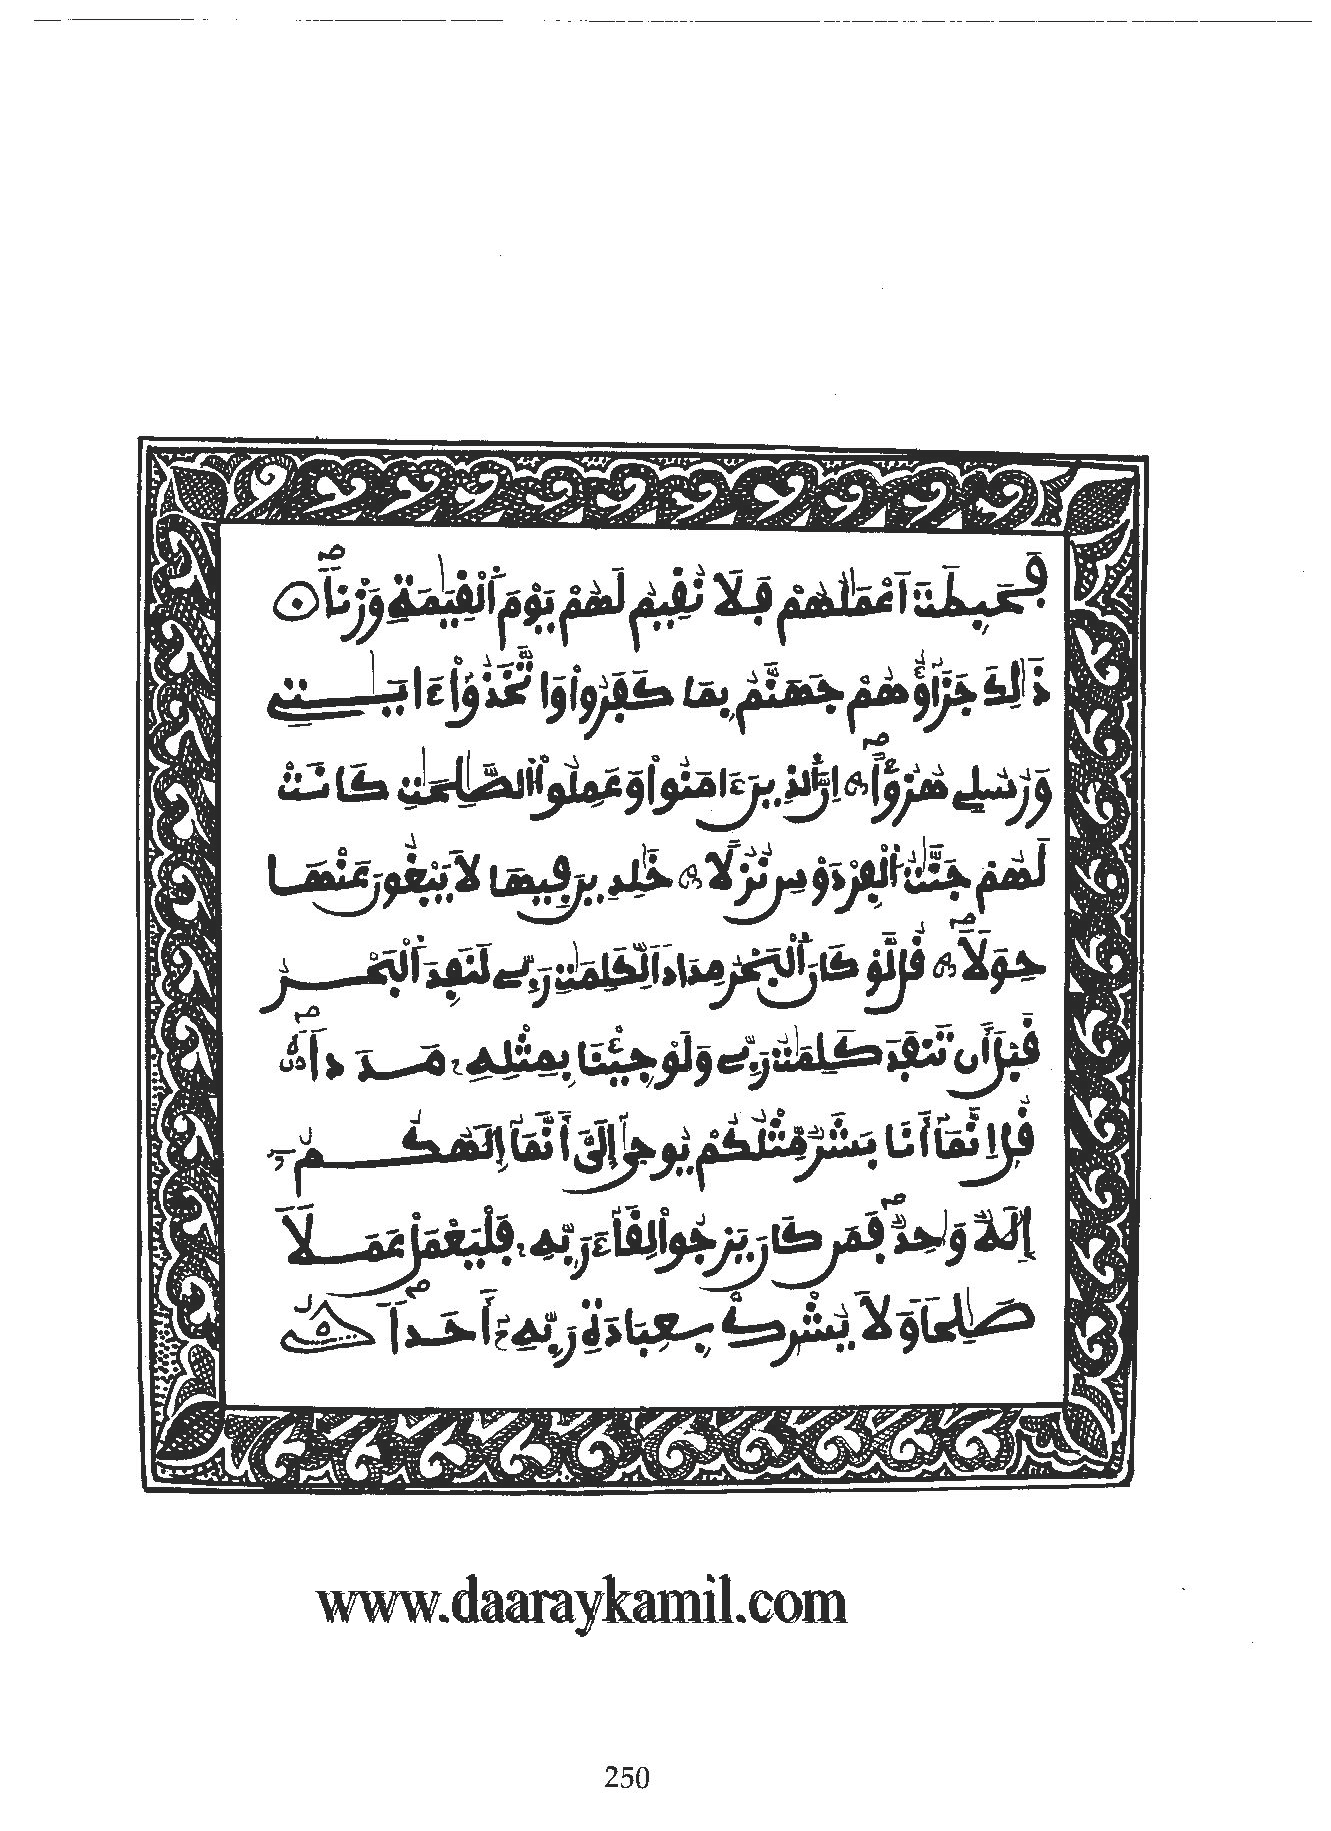 فَحَبِطَتَ اَعْمَٰلُهُمْ فَلَا نُقِيمُ لَهُمْ يَوْمَ اَلْقِيَٰمَةِ وَزْناً
ذَٰلِكَ جَزَآؤُهُمْ جَهَنَّمُ بِمَا كَفَرُواْ وَاتَّخَذُوٓاْ ءَايَٰتِے
وَرُسُلِے هُزُؤاً اِنَّ اَلذِينَ ءَامَنُواْ وَعَمِلُواْ اُلصَّٰلِحَٰتِ كَانَتْ
لَهُمْ جَنَّٰتُ اُلْفِرْدَوْسِ نُزُلًا خَٰلِدِينَ فِيهَا لَا يَبْغُونَ عَنْهَا
حِوَلًا قُل لَّوْ كَانَ اَلْبَحْرُ مِدَاداً لِّكَلِمَٰتِ رَبِّے لَنَفِدَ اَلْبَحْرُ
قَبْلَ أَن تَنفَدَ كَلِمَٰتُ رَبِّے وَلَوْ جِئْنَا بِمِثْلِهِۦ مَدَداً
قُلِ اِنَّمَآ أَنَا بَشَرٌ مِّثْلُكُمْ يُوحَىٰٓ إِلَىَّ أَنَّمَآ إِلَٰهُكُمُۥٓ
إِلَٰهٌ وَٰحِدٌ فَمَن كَانَ يَرْجُواْ لِقَآءَ رَبِّهِۦ فَلْيَعْمَلْ عَمَلًا
صَٰلِحاً وَلَا يُشْرِكْ بِعِبَادَةِ رَبِّهِۦٓ أَحَداً
www.daaraykamil.com
250